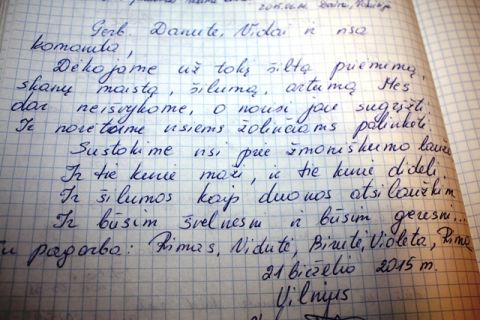 Gerb. Danute, Vidai ir visa
komanda,
Dėkojame už tokį šiltą priėmimą,
skanų maistą, šilumą, artumą. Mes
dar neišvykome, o norisi jau sugrįžti.
Ir norėtume visiems žolinčiams palinkėti
Sustokime visi prie žmoniškumo laužo
Ir tie kurie maži, ir tie kurie dideli
Ir šilumos kaip duonos atsilaužkim
Ir būsim švelnesni ir būsim geresni...
Su pagarba: Rimas, Vidutė, Birutė, Violeta, Rima
21 birželio 2015 m.
Vilnius